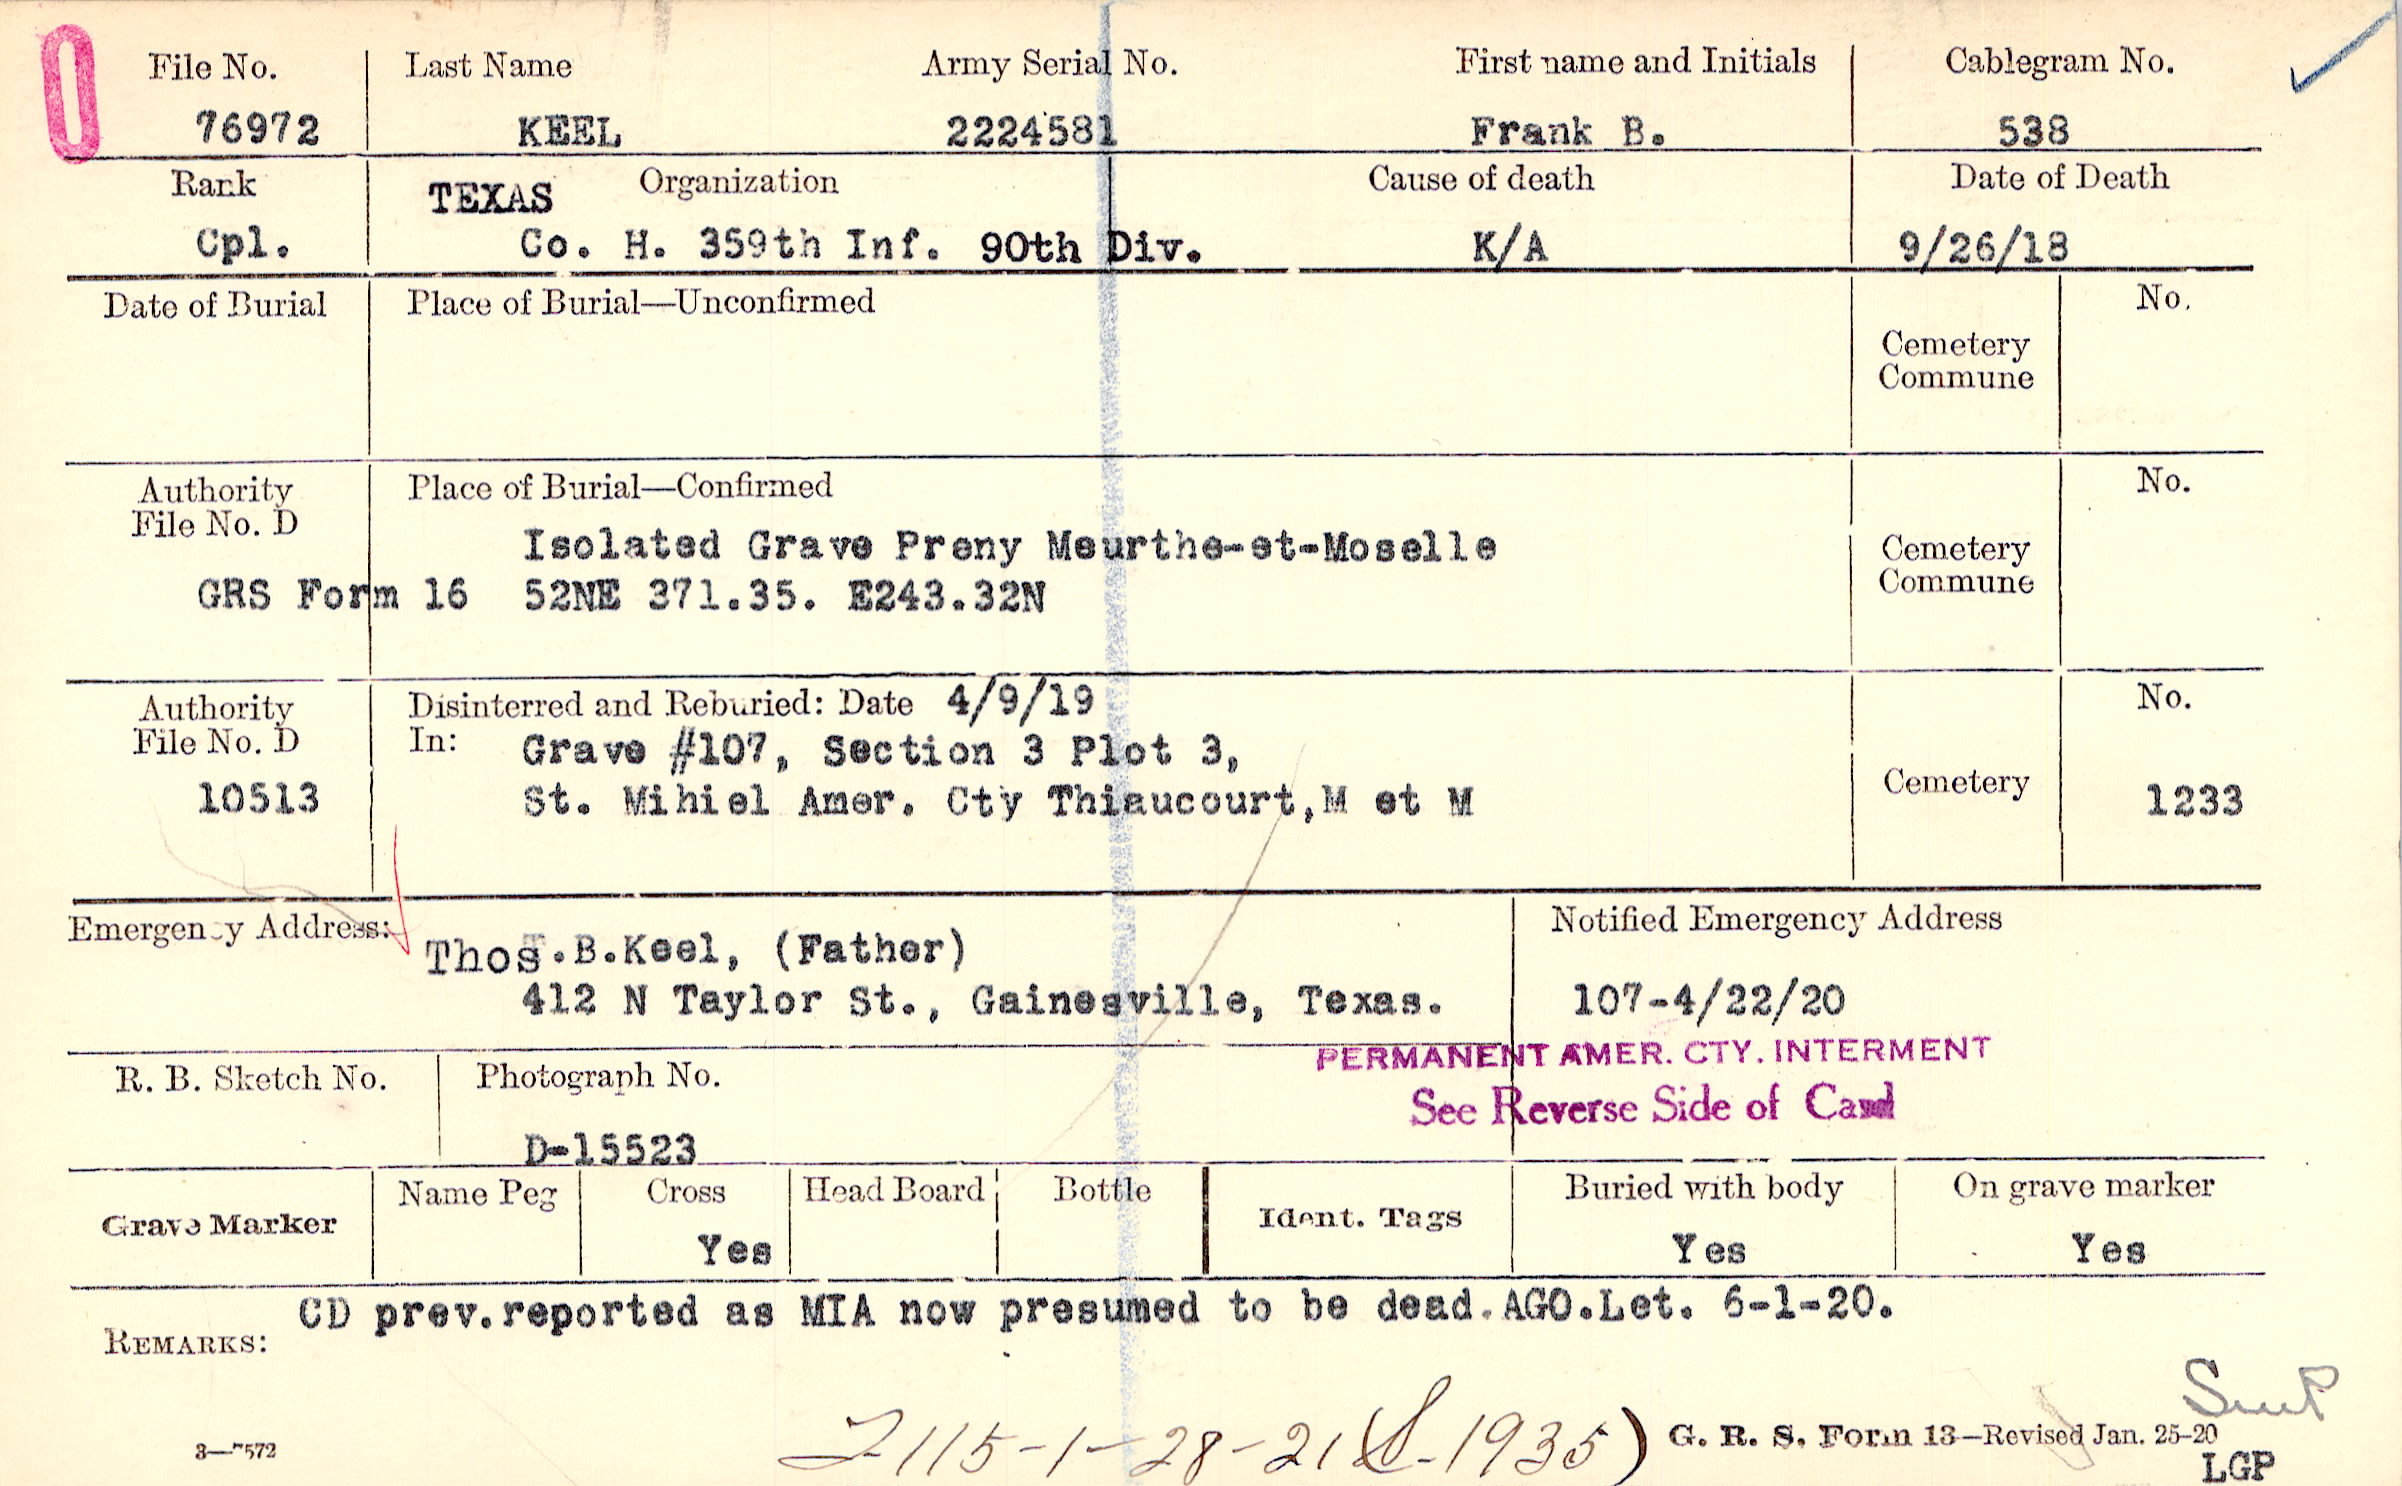 File No. Last Name Army Serial No. First name and Initials Cablegram No.
76972 KEEL 2224581 Frank B. 538
Rank TEXAS Organization Cause of death Date of Death
Cpl. Co. H. 359th Inf. 90th Div. K/A 9/26/18
Date of Burial Place of Burial—Unconfirmed No.
Cemetery
Commune
Authority Place of Burial—Confirmed No.
File No. D
Isolated Grave Preny Meurthe-et-Moselle Cemetery
GRS Form 16 52NE 371.35. E243.32N Commune
Authority Disinterred and Reburied: Date 4/9/19 No.
File No. D In: Grave #107, Section 3 Plot 3,
10513 St. Mihiel Amer. Cty Thiaucourt,M et M Cemetery 1233
Emergency Address: Notified Emergency Address
Thos.B.Keel, (Father)
412 N Taylor St., Gainesville, Texas. 107-4/22/20
PERMANENT AMER. CTY. INTERMENT
R. B. Sketch No. Photograph No. See Reverse Side of Card
D-15523
Grave Marker Name Peg Cross Head Board Bottle Ident. Tags Buried with body On grave marker
Yes Yes Yes
CD prev.reported as MIA now presumed to be dead.AGO.Let. 6-1-20.
REMARKS:
2115-1-28-21 (S-1935)
3—7572 G. R. S. Form 13—Revised Jan. 25-20
LGP